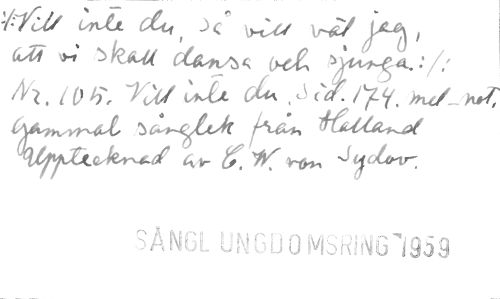 :/: Vill inte du, så vill väl jag,
att vi skall dansa och sjunga. :/:
Nr. 105. Vill inte du. Sid. 174. mel-not,
gammal sånglek från Halland
Upptecknad av C. W. von Sydov.
SÅNGL UNGDOMSRING 1959